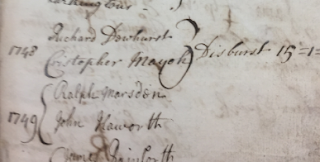 Richard Dewhurst
1748 Cristopher Mayoh } Disburst 15=1=
Ralph Marsden
1749 { John Haworth
James Rainforth